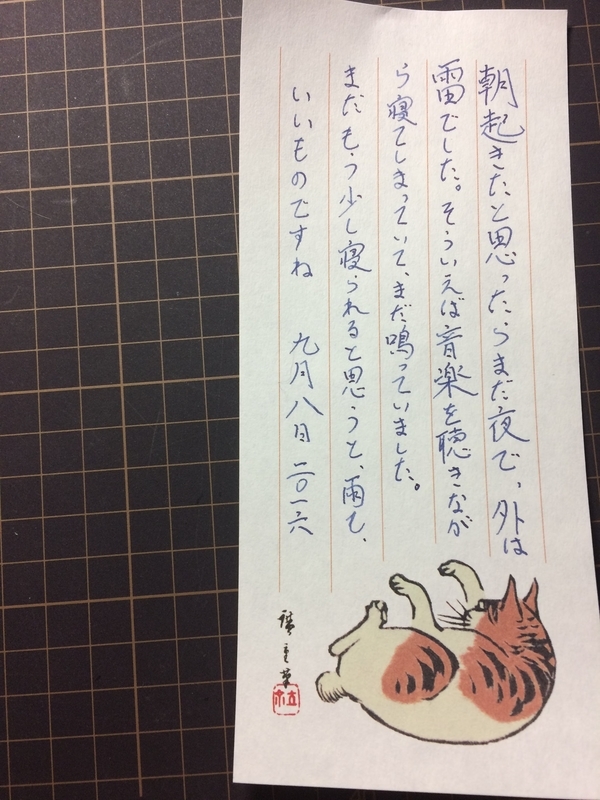 朝起きたと思ったらまだ夜で、外は
雷でした。そういえば音楽を聴きなが
ら寝てしまっていて、まだ鳴っていました。
まだもう少し寝られると思うと、雨も、
いいものですね　九月八日 二〇一六
廣重筆